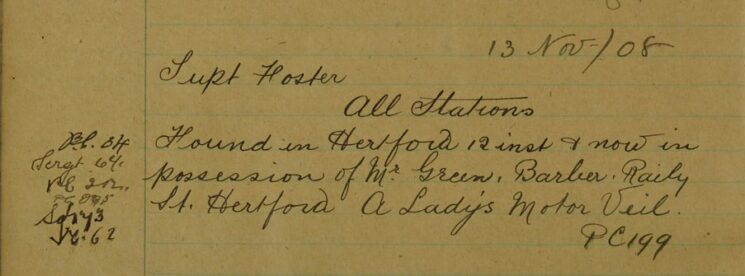 13 Nov/08
Supt Foster
All Stations
Found in Hertford 12 inst & now in
possession of Mr Green. Barber. Raily
St. Hertford A Lady's Motor Veil.
PC 199
P.C. 34
Sergt 64.
PC
Sgt 73
PC. 62